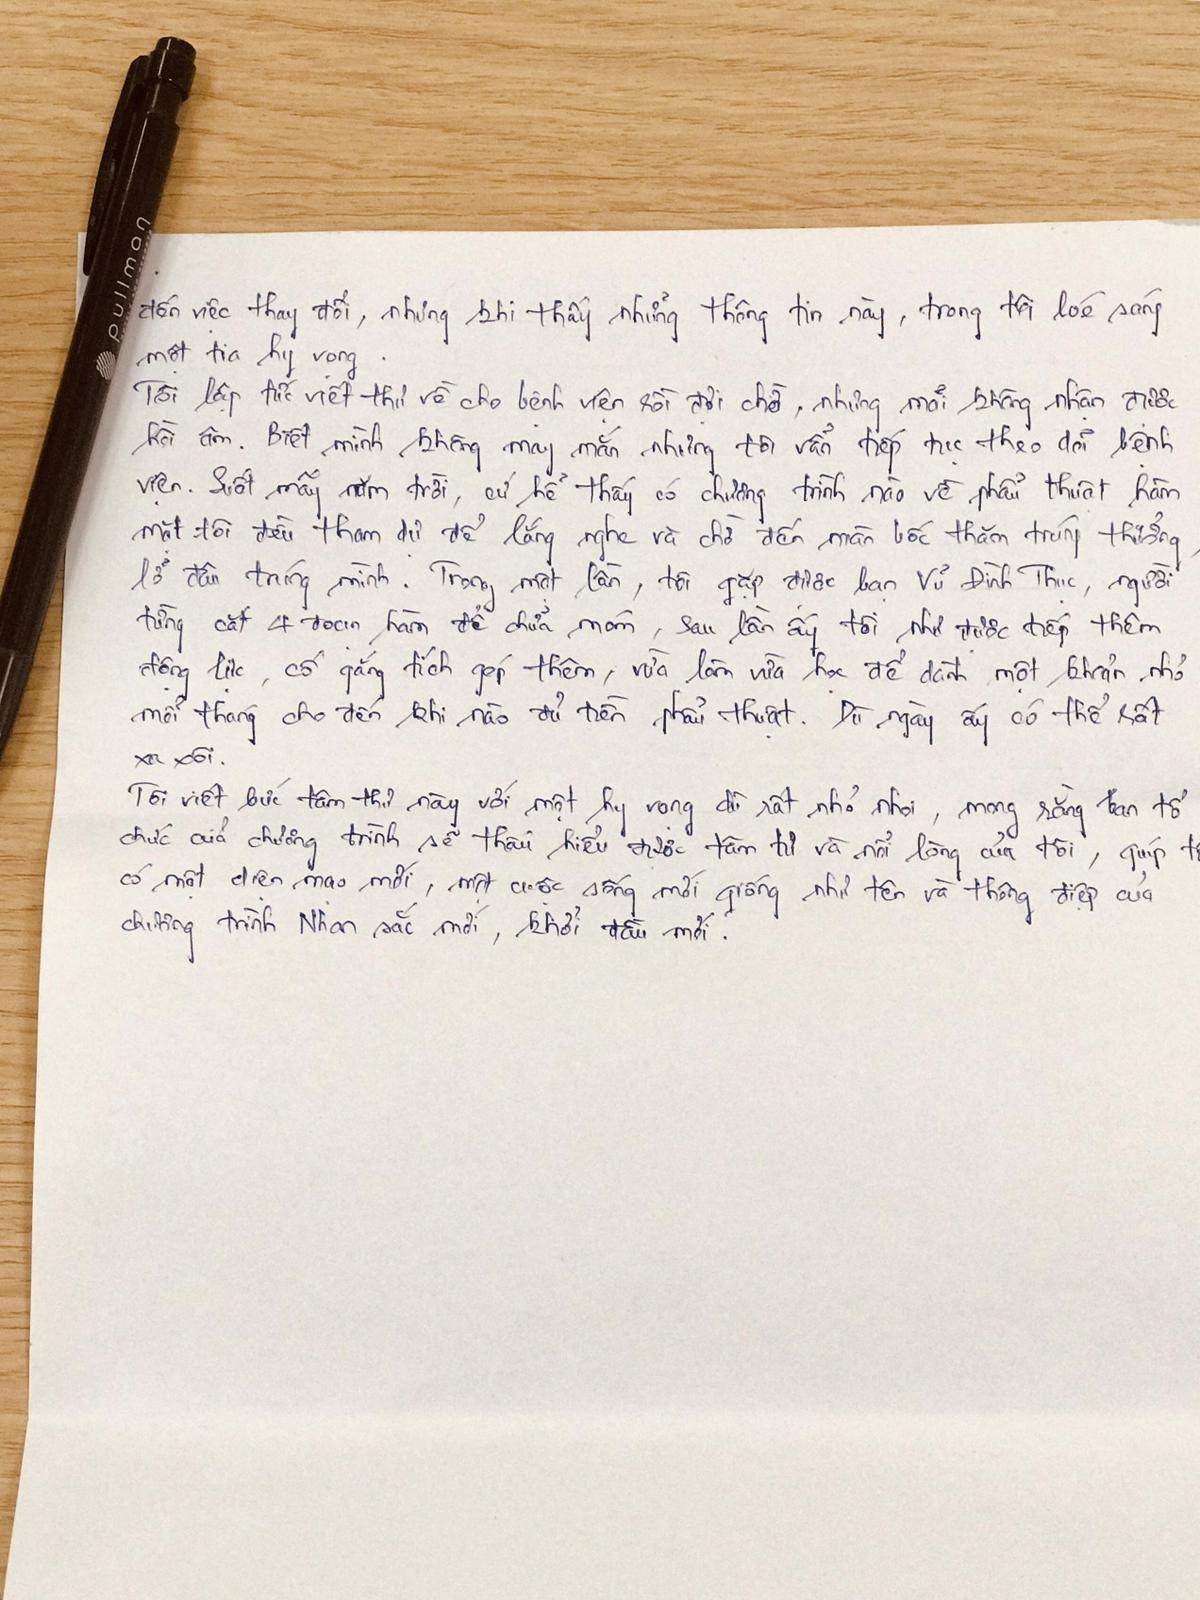 pullman
đến việc thay đổi, nhưng khi thấy những thông tin này, trong tôi loé sáng
một tia hy vọng.
Tôi lập tức viết thư về cho bệnh viện rồi đợi chờ, nhưng mãi không nhận được
hồi âm. Biết mình không may mắn nhưng tôi vẫn tiếp tục theo dõi bệnh
viện. Suốt mấy năm trời, cứ hễ thấy có chương trình nào về phẫu thuật hàm
mặt tôi đều tham dự để lắng nghe và chờ đến màn bốc thăm trúng thưởng,
lỡ đâu trúng mình. Trong một lần, tôi gặp được bạn Vũ Đình Thục, người
từng cắt 4 đoạn hàm để chữa móm, sau lần ấy tôi như được tiếp thêm
động lực, cố gắng tích góp thêm, vừa làm vừa học để dành một khoản nhỏ
mỗi tháng cho đến khi nào đủ tiền phẫu thuật. Dù ngày ấy có thể rất
xa xôi.
Tôi viết bức tâm thư này với một hy vọng dù rất nhỏ nhoi, mong rằng ban tổ
chức của chương trình sẽ thấu hiểu được tâm tư và nỗi lòng của tôi, giúp
có một diện mạo mới, một cuộc sống mới giống như tên và thông điệp của
chương trình Nhan sắc mới, khởi đầu mới.